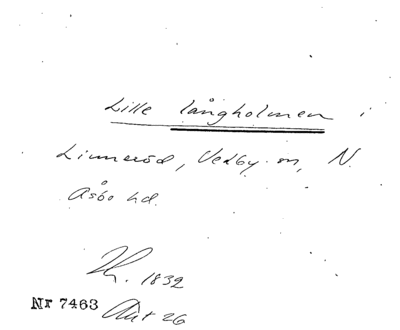 Lille långholmen i
Linneröd, Vedby sn, N.
Åsbo hd.
1832
Nr 7463 26